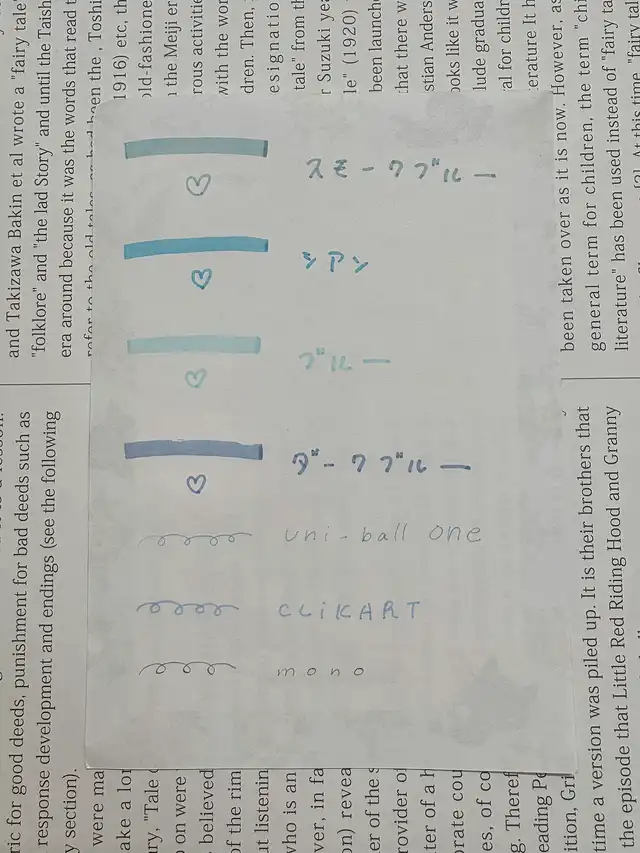 スモークブルー
シアン
ブルー
ダークブルー
uni-ball one
CLiKART
mono
and Takizawa Bakin et al wrote a "fairy tale"
"folklore" and "the lad Story" and until the
era around because it was the words that read
refer to the old tales, as had been the , Toshi
1916) etc,
the Meiji
with the
dren. Then,
esignation
tale" from
Suzuki
(1920)
been
that there
looks like it
al for
erature It
been taken over as it is now. However, as
general term for children, the term
literature" has been used instead of "fairy
At this time "fairy
for good deeds, punishment for bad deeds such as
response development and endings (see the following
section).
were
ake a
"Tale
on were
believed
of the
listening
who is an
ver, in
reveal
er of the
provider of
ter of a
orate
es, of
g.
time a version was piled up. It is their brothers that
the episode that Little Red Riding Hood and Granny